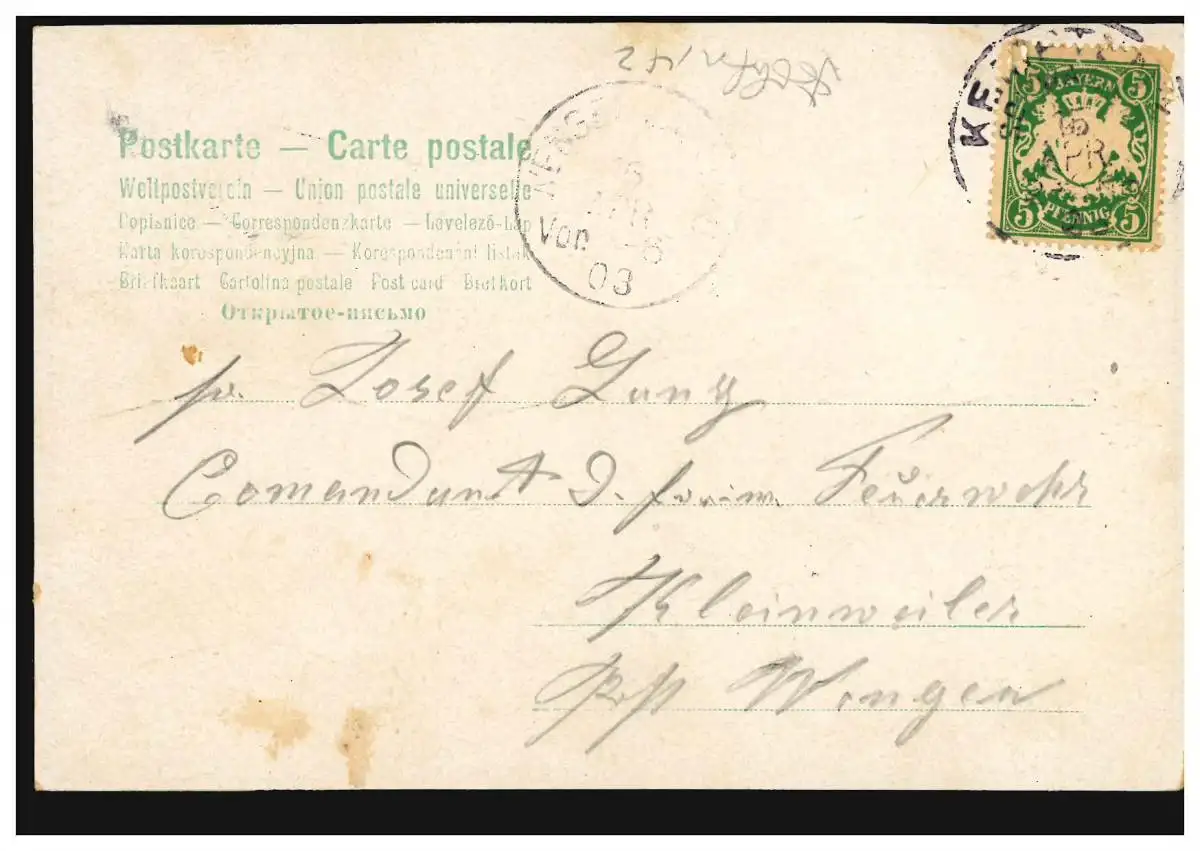 Postkarte — Carte postale
Weltpostverein — Union postale universelle
Dopisnice — Correspondenzkarte — Levelező-Lap
Karta korespondencyjna — Korespondenční lístek
Briefkaart Cartolina postale Post card Brefkort
Открытое-письмо
Von
03
5 BAYERN 5
APR
5 PFENNIG 5
Josef
Comandant d. freiw. Feuerwehr
Kleinweiler
Wengen